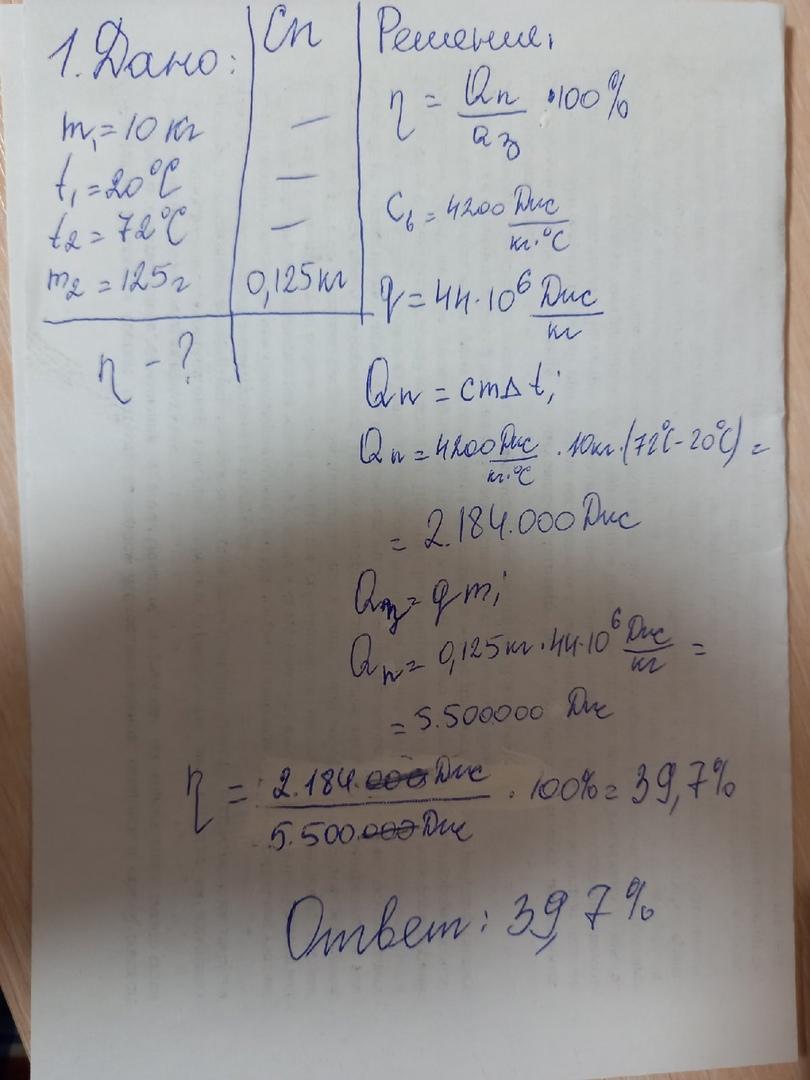 1. Дано:
Сп
Решение:
m₁ = 10 кг
—
t₁ = 20°C
—
t₂ = 72°C
—
m₂ = 125 г
0,125 кг
η - ?
η = Qп / Qз · 100%
Cв = 4200 Дж / кг·°C
q = 44·10⁶ Дж / кг
Qп = cmΔt;
Qп = 4200 Дж / кг·°C · 10 кг · (72°C - 20°C) =
= 2.184.000 Дж
Qз = qm;
Qп = 0,125 кг · 44·10⁶ Дж / кг =
= 5.500000 Дж
η = 2.184.000 Дж / 5.500.000 Дж · 100% = 39,7%
Ответ: 39,7%